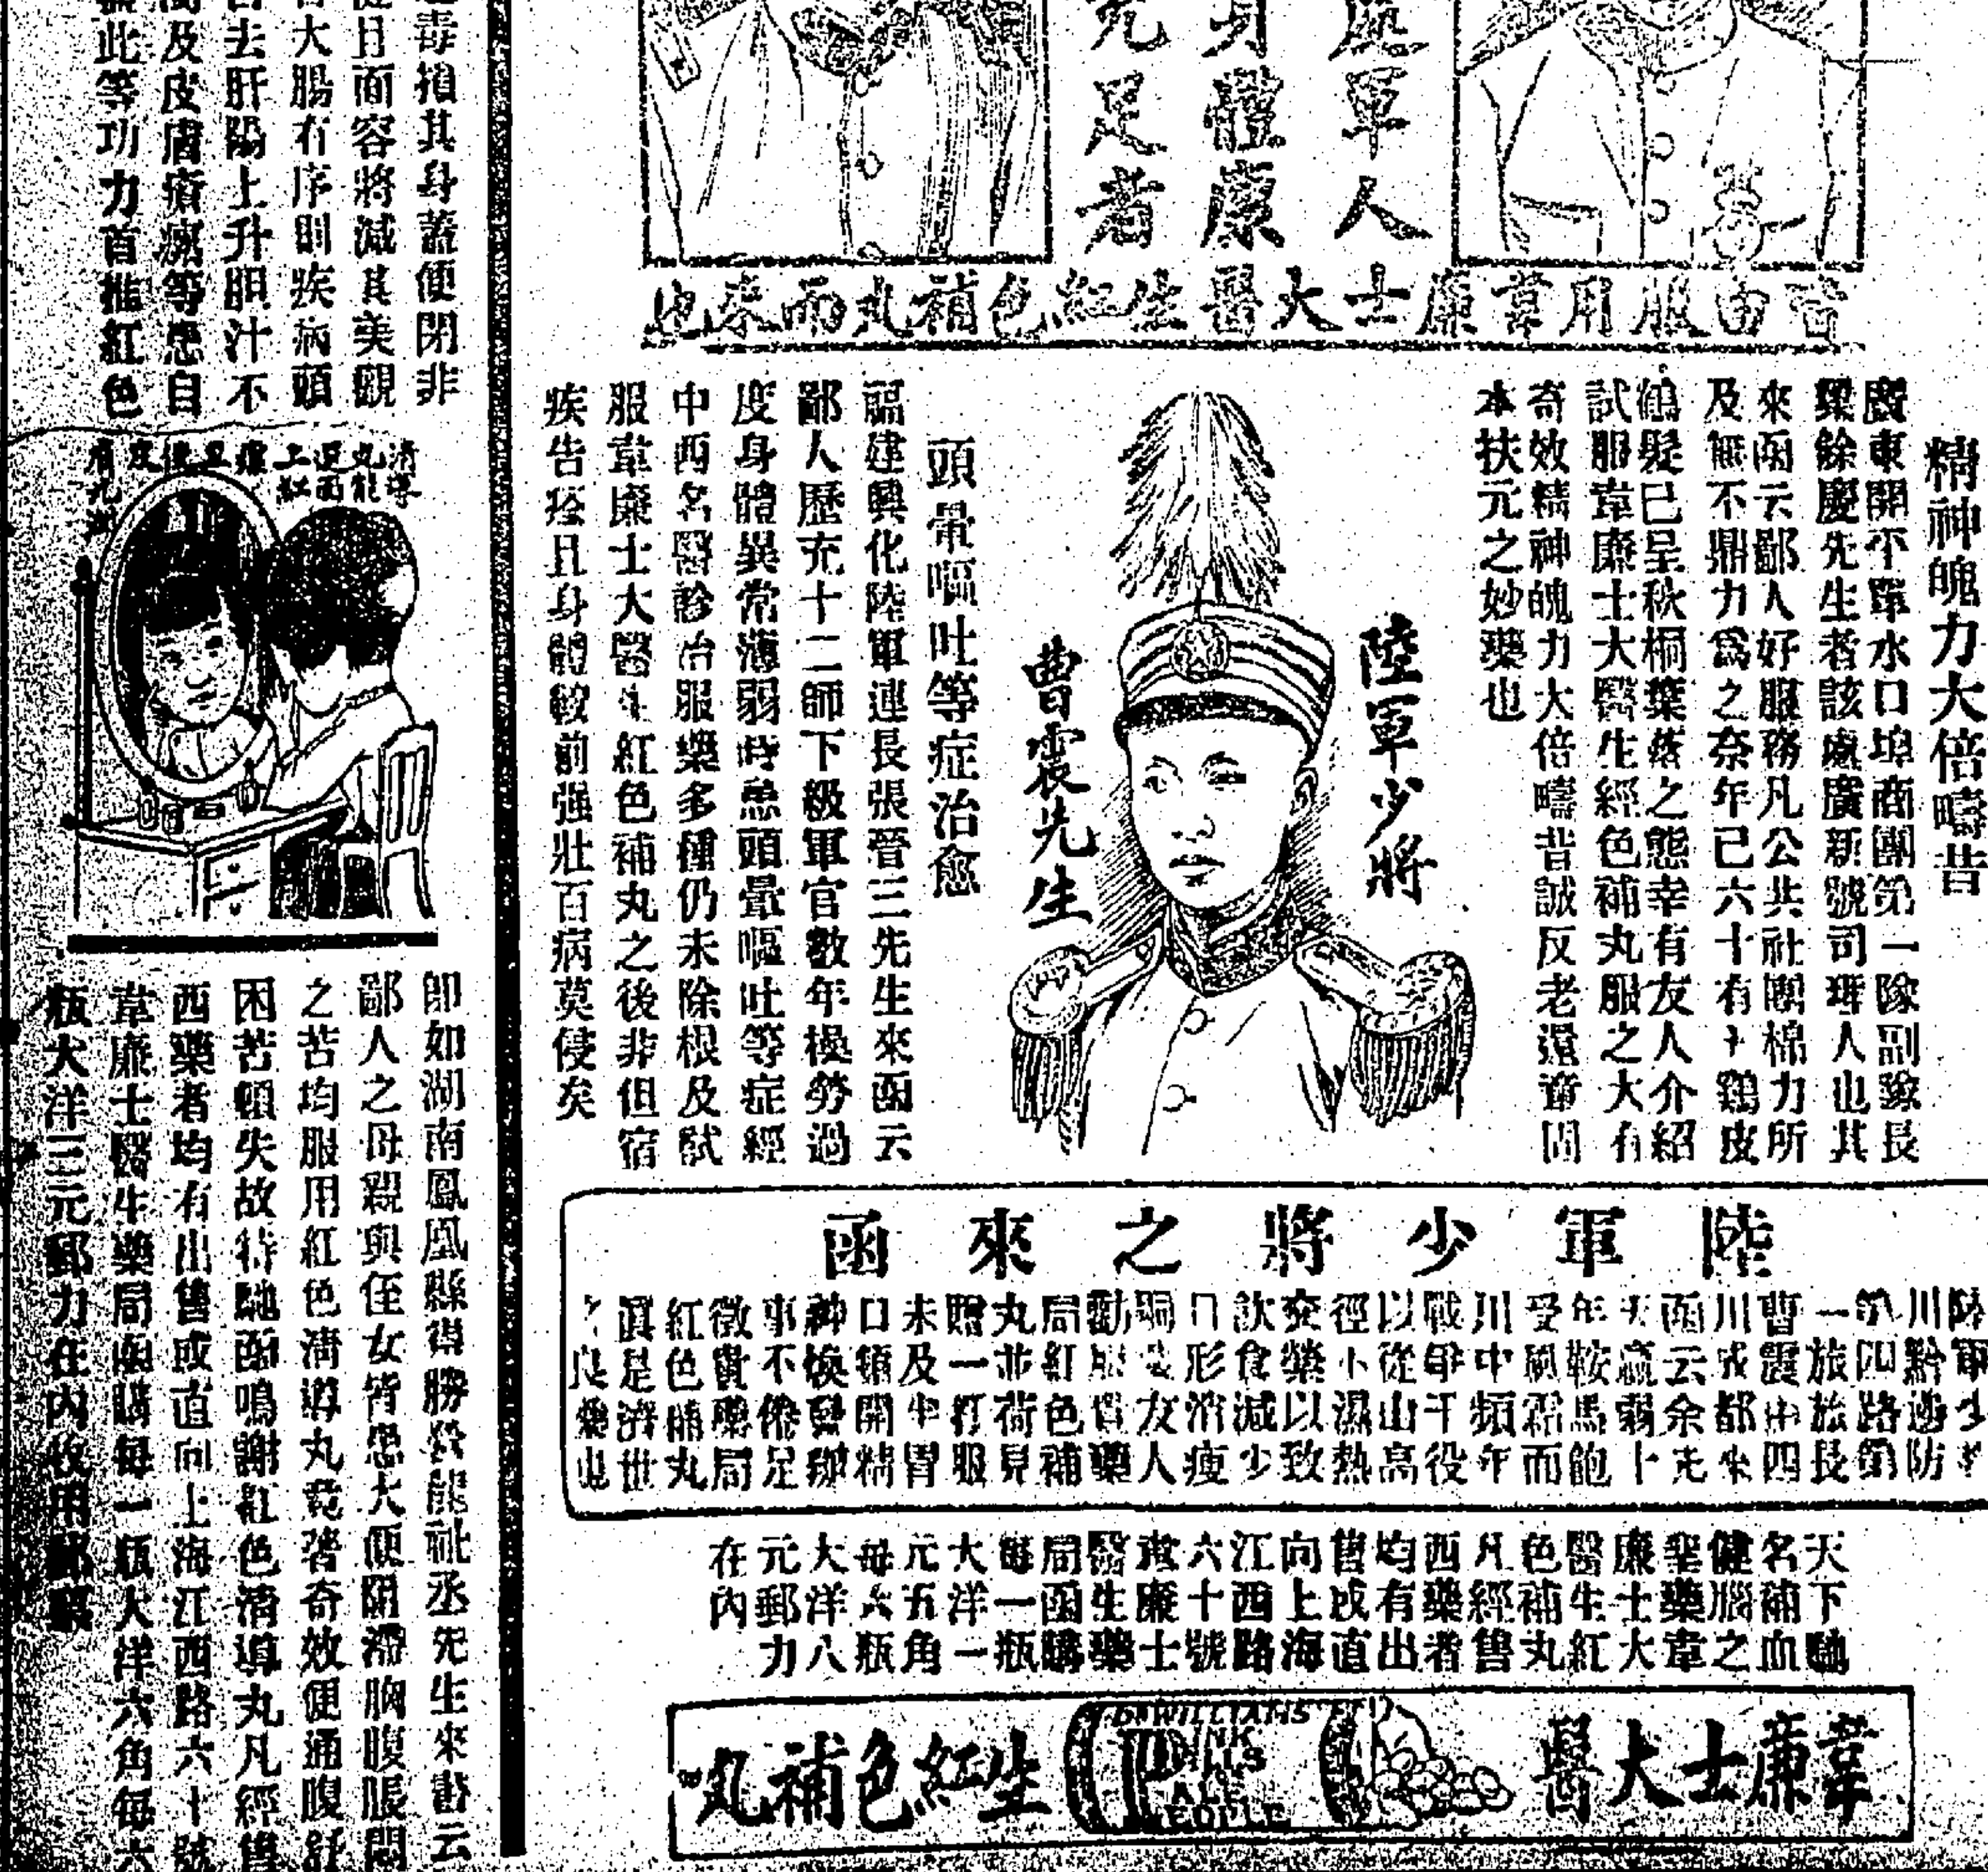 應軍人
身體康
充足者
皆由服用韋廉士大醫生紅色補丸而來也
精神魄力大倍疇昔
廣東開平單水口埠商團第一隊副隊長
梁餘慶先生者該處廣新號司理人也其
來函云鄙人好服務凡公共社團棉力所
及無不鼎力為之奈年已六十有 鷄皮
鶴髮已呈秋桐葉落之態幸有友人介紹
試服韋廉士大醫生經色補丸服之大有
奇效精神魄力大倍疇昔誠反老還童固
本扶元之妙藥也
陸軍少將
曹震先生
頭暈嘔吐等症治愈
福建興化陸軍連長張晉三先生來函云
鄙人歷充十二師下級軍官數年操勞過
度身體異常薄弱時患頭暈嘔吐等症經
中西名醫診治服藥多種仍未除根及試
服韋廉士大醫生紅色補丸之後非但宿
疾告痊且身體較前强壯百病莫侵矣
陸軍少將之來函
陸軍少將
川黔邊防
第四路第
一旅旅長
曹震由四
川成都來
函云余先
天羸弱十
年鞍馬飽
受風霜而
川中頻年
戰爭千役
以從山高
徑小濕熱
交縈以致
飲食減少
日形消瘦
嗣 友人
勸服 藥
局紅色補
丸並荷見
贈一打服
未及半胃
口頓開精
神煥發辦
事不倦足
徵貴藥局
紅色補丸
眞是濟世
之良藥也
天下馳
名補血
健腦之
聖藥韋
廉士大
醫生紅
色補丸
凡經售
西藥者
均有出
售或直
向上海
江西路
六十號
韋廉士
醫生藥
局函購
每一瓶
大洋一
元五角
每六瓶
大洋八
元郵力
在內
韋廉士大醫生紅色補丸
DR WILLIAMS
PINK
PILLS
PEOPLE
毒損其身蓋便閉非
且面容將減其美觀
大腸有序則疾病頭
去肝陽上升胆汁不
及皮膚瘡癤等患自
此等功力首推紅色
清導
丸能
即如湖南鳳凰縣得勝營龍祉丞先生來書云
鄙人之母親與侄女皆患大便阻滯胸腹脹悶
之苦均服用紅色清導丸竟著奇效便通腹舒
困苦頓失故特馳函鳴謝紅色清導丸凡經售
西藥者均有出售或直向上海江西路六十號
韋廉士醫生藥局函購每一瓶大洋六角每六
瓶大洋三元郵力在內收用郵票